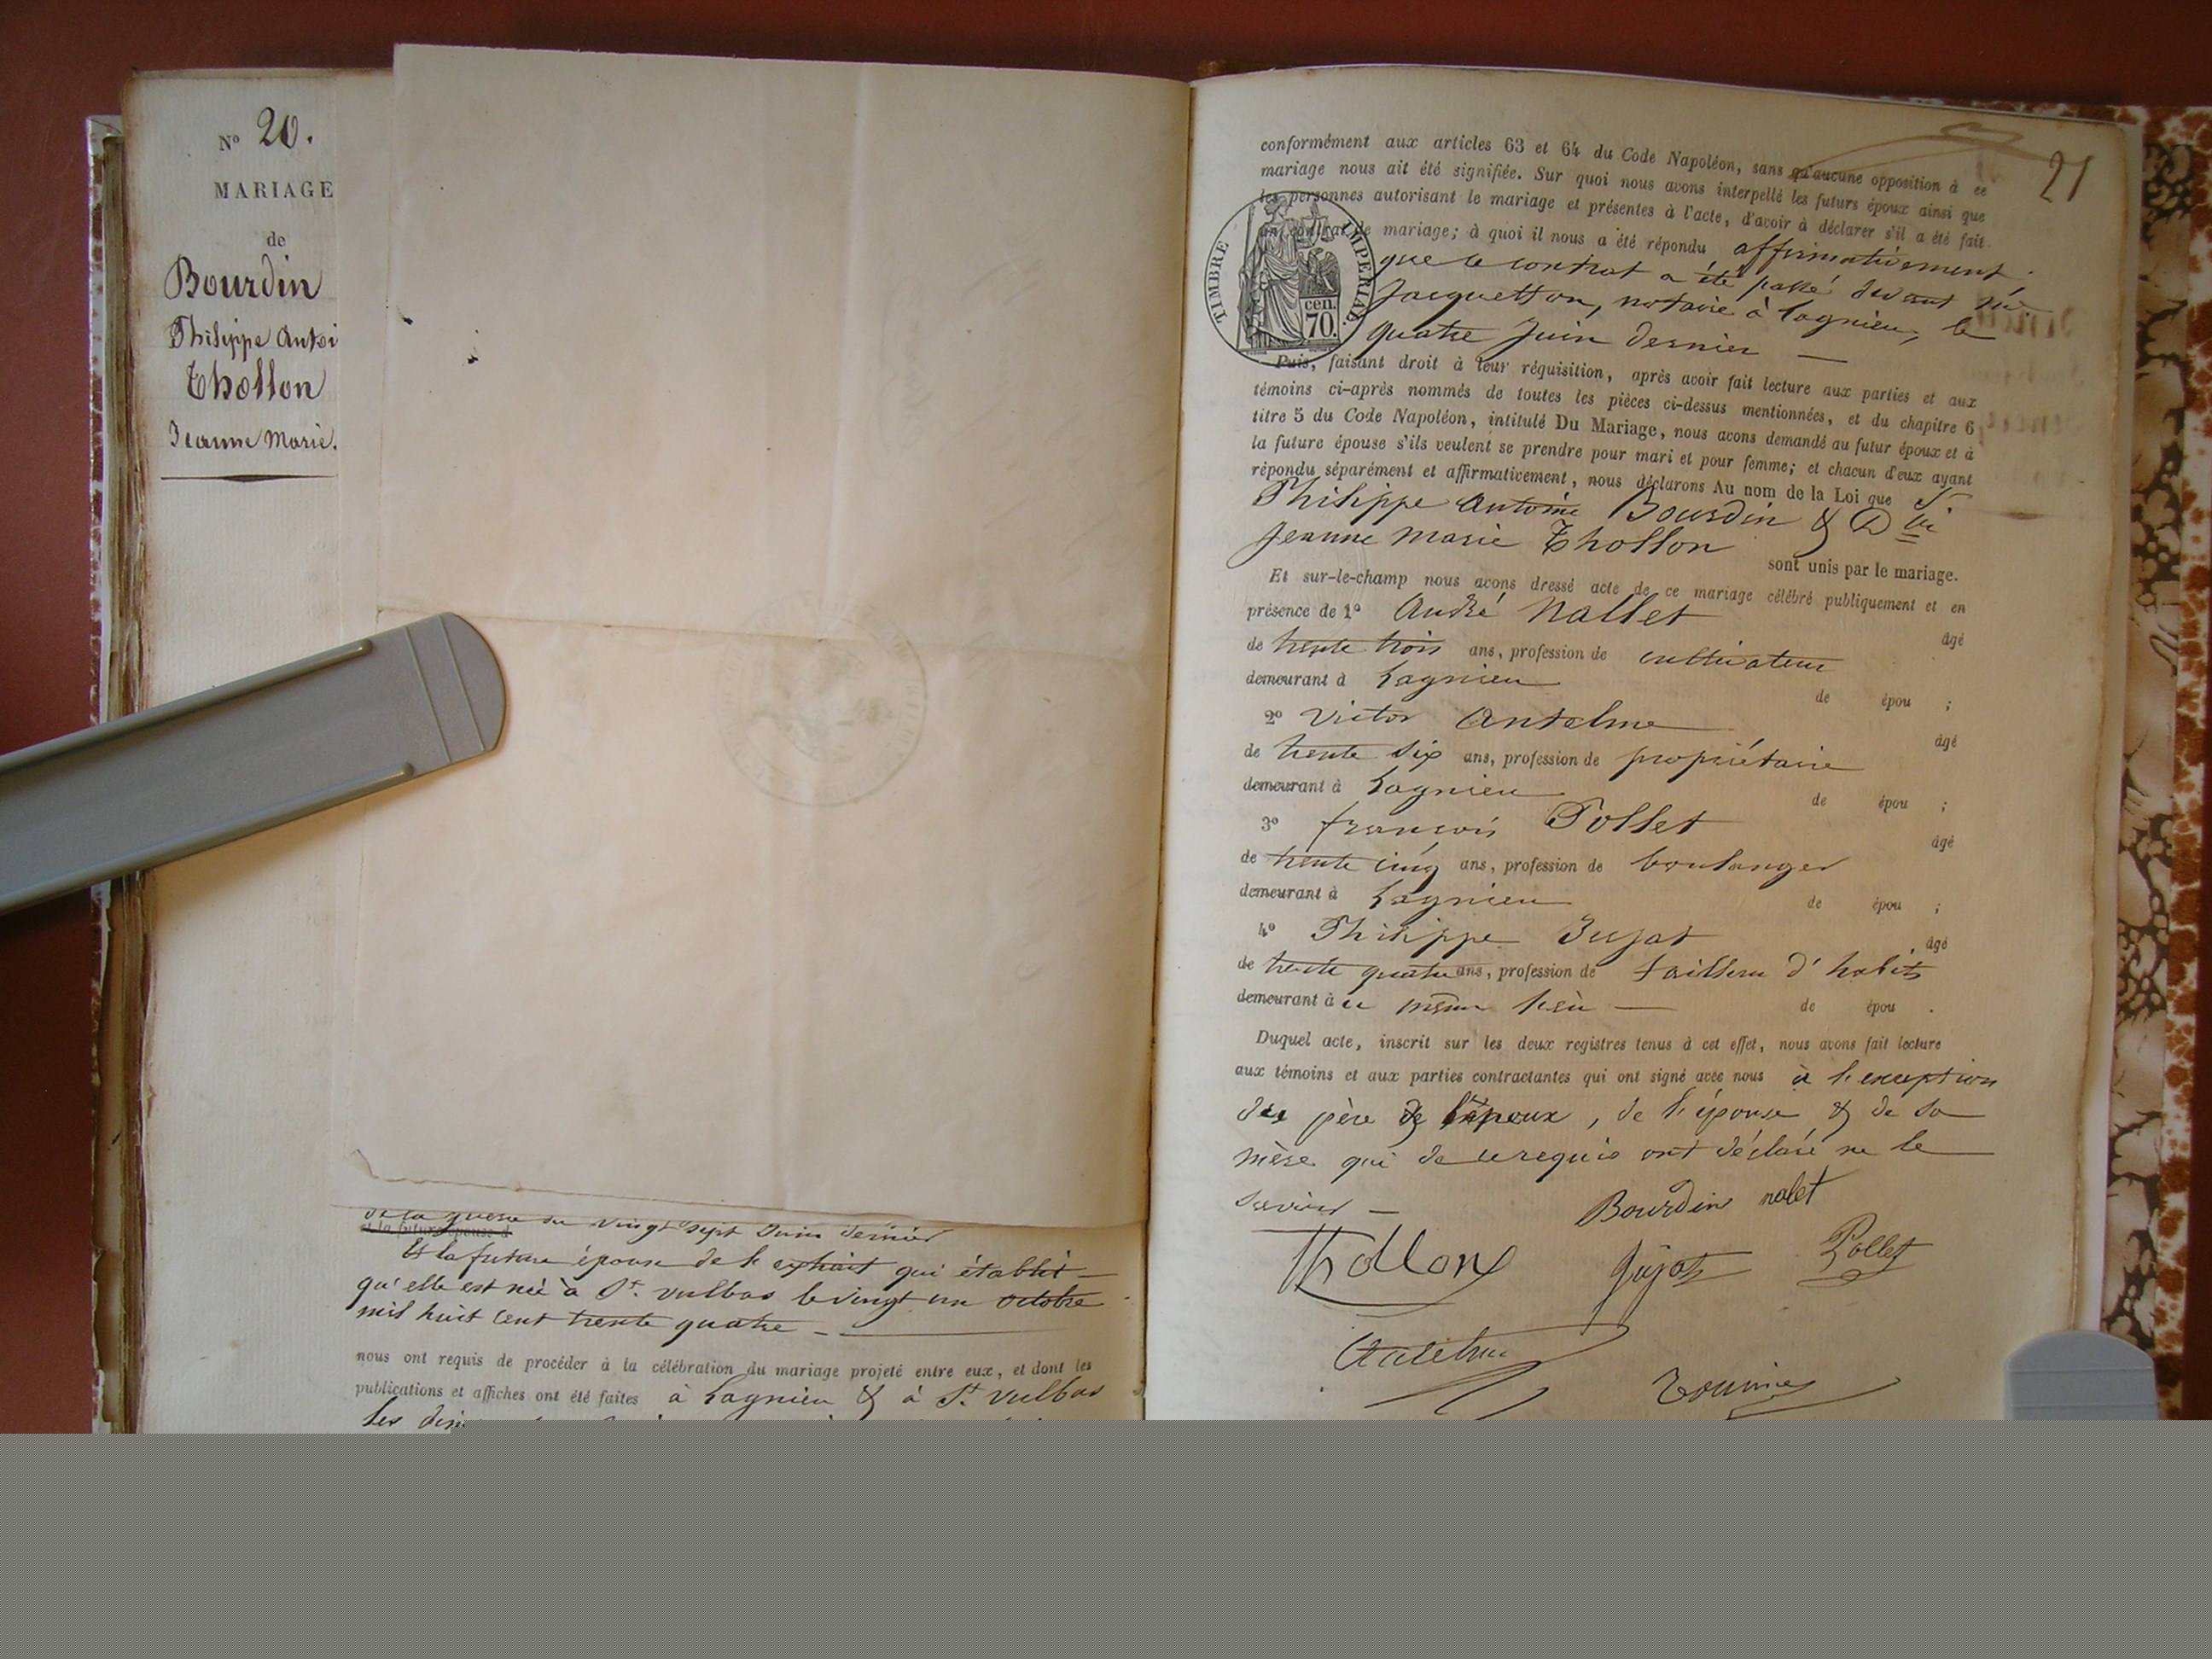 N° 20.
MARIAGE
de
Bourdin
Philippe Antoi
Thollon
Jeanne Marie.
de la guerre du vingt sept Juin dernier
et la future épouse d
Et la future épouse de l'extrait qui établit
qu'elle est née à St. Vulbas le vingt un octobre
mil huit cent trente quatre —
nous ont requis de procéder à la célébration du mariage projeté entre eux, et dont les
publications et affiches ont été faites à Lagnieu & à St. Vulbas
les
21
conformément aux articles 63 et 64 du Code Napoléon, sans qu'aucune opposition à ce
mariage nous ait été signifiée. Sur quoi nous avons interpellé les futurs époux ainsi que
les personnes autorisant le mariage et présentes à l'acte, d'avoir à déclarer s'il a été fait
un contrat de mariage; à quoi il nous a été répondu affirmativement.
que ce contrat a été passé devant Me
Jacquetton, notaire à Lagnieu, le
quatre Juin dernier —
TIMBRE IMPERIAL
cen.
70.
Puis, faisant droit à leur réquisition, après avoir fait lecture aux parties et aux
témoins ci-après nommés de toutes les pièces ci-dessus mentionnées, et du chapitre 6,
titre 5 du Code Napoléon, intitulé Du Mariage, nous avons demandé au futur époux et à
la future épouse s'ils veulent se prendre pour mari et pour femme; et chacun d'eux ayant
répondu séparément et affirmativement, nous déclarons Au nom de la Loi que Sr
Philippe Antoine Bourdin & Dlle
Jeanne Marie Thollon sont unis par le mariage.
Et sur-le-champ nous avons dressé acte de ce mariage célébré publiquement et en
présence de 1° André Nallet âgé
de trente trois ans, profession de cultivateur
demeurant à Lagnieu de épou ;
2° Victor Anselme âgé
de trente six ans, profession de propriétaire
demeurant à Lagnieu de épou ;
3° françois Pollet âgé
de trente cinq ans, profession de boulanger
demeurant à Lagnieu de épou ;
4° Philippe Jujat âgé
de trente quatre ans, profession de tailleur d'habits
demeurant à ce même lieu — de épou .
Duquel acte, inscrit sur les deux registres tenus à cet effet, nous avons fait lecture
aux témoins et aux parties contractantes qui ont signé avec nous à l'exception
du père de l'époux, de l'épouse & de sa
mère qui de ce requis ont déclaré ne le
savoir —
Bourdin nalet
Thollon Jujat Pollet
Anselme